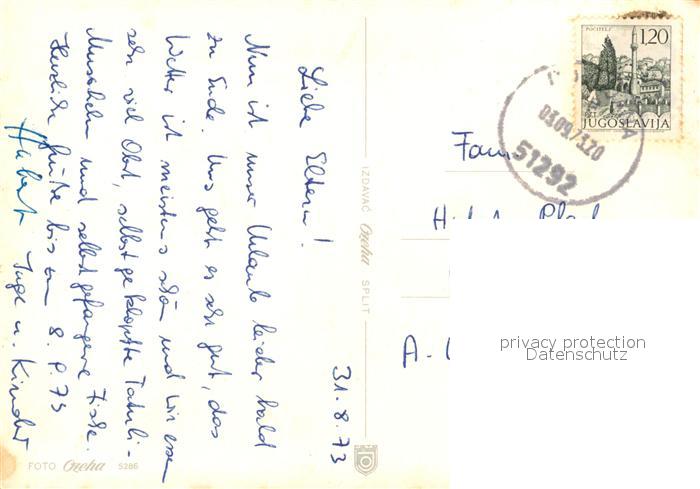 31.8.73
Liebe Eltern!
Nun ist unser Urlaub leider bald
zu Ende. Uns geht es sehr gut, das
Wetter ist meistens schön und wir essen
sehr viel Obst, selbstgeklopfte
Muscheln und selbstgefangene Fische.
Herzliche Grüße bis am 8.9.73
Hubert Inge u. Kinder
FOTO Ozeha 5286
IZDAVAČ Ozeha SPLIT
POČITELJ
1,20
PTT
JUGOSLAVIJA
03.09.73.20
51292
Fam
A-
privacy protection
Datenschutz